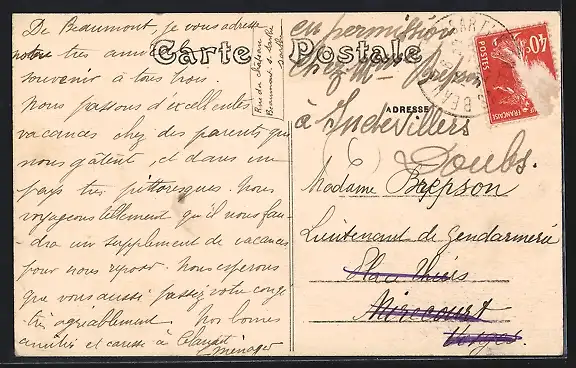 De Beaumont, je vous adresse
notre très ami
souvenir à tous trois
Nous passons d'excellentes
vacances chez des parents qui
nous gâtent, et dans un
pays très pittoresque. Nous
voyageons tellement qu'il nous fau-
dra un supplément de vacances
pour nous reposer. Nous espérons
que vous aussi passez votre congé
très agréablement. Nos bonnes
amitiés et caresse à Claudet
Ménager
Rue du château
Beaumont s. Sarthe
Sarthe
Carte Postale
en permission
chez Mme
ADRESSE
à
Doubs.
Madame
Lieutenant de Gendarmerie
Place Thiers
Mirecourt
Vosges
POSTES
40c